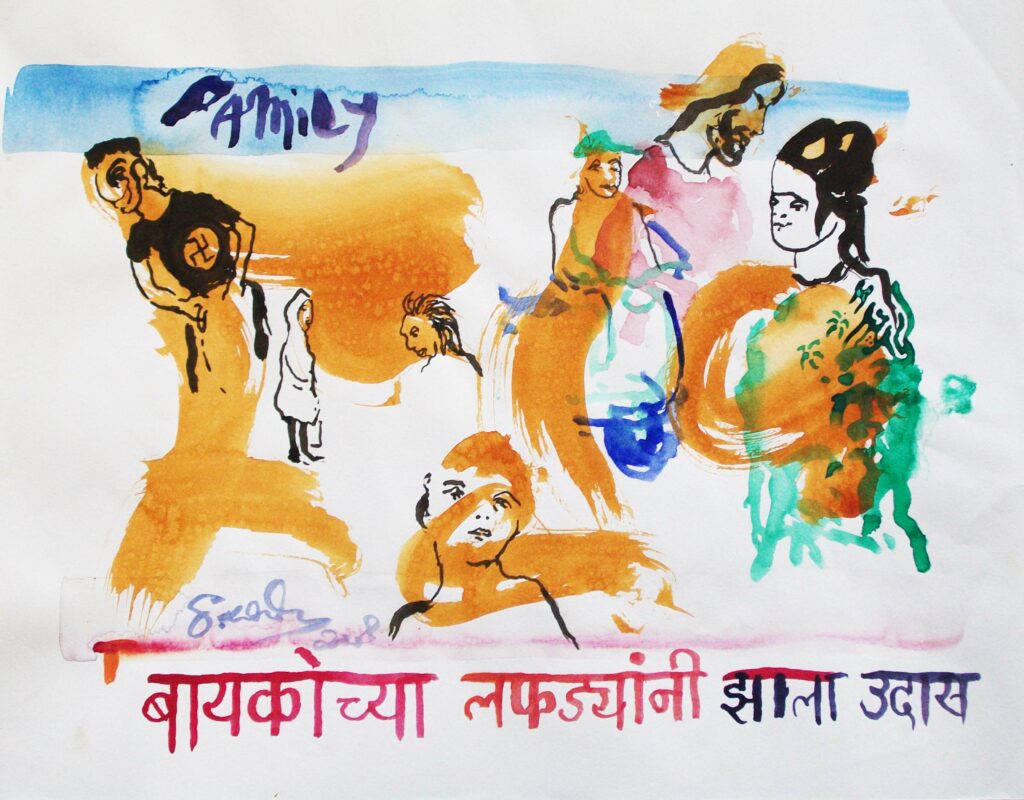 FAMILY
2008
बायकोच्या लफड्यांनी झाला उदास